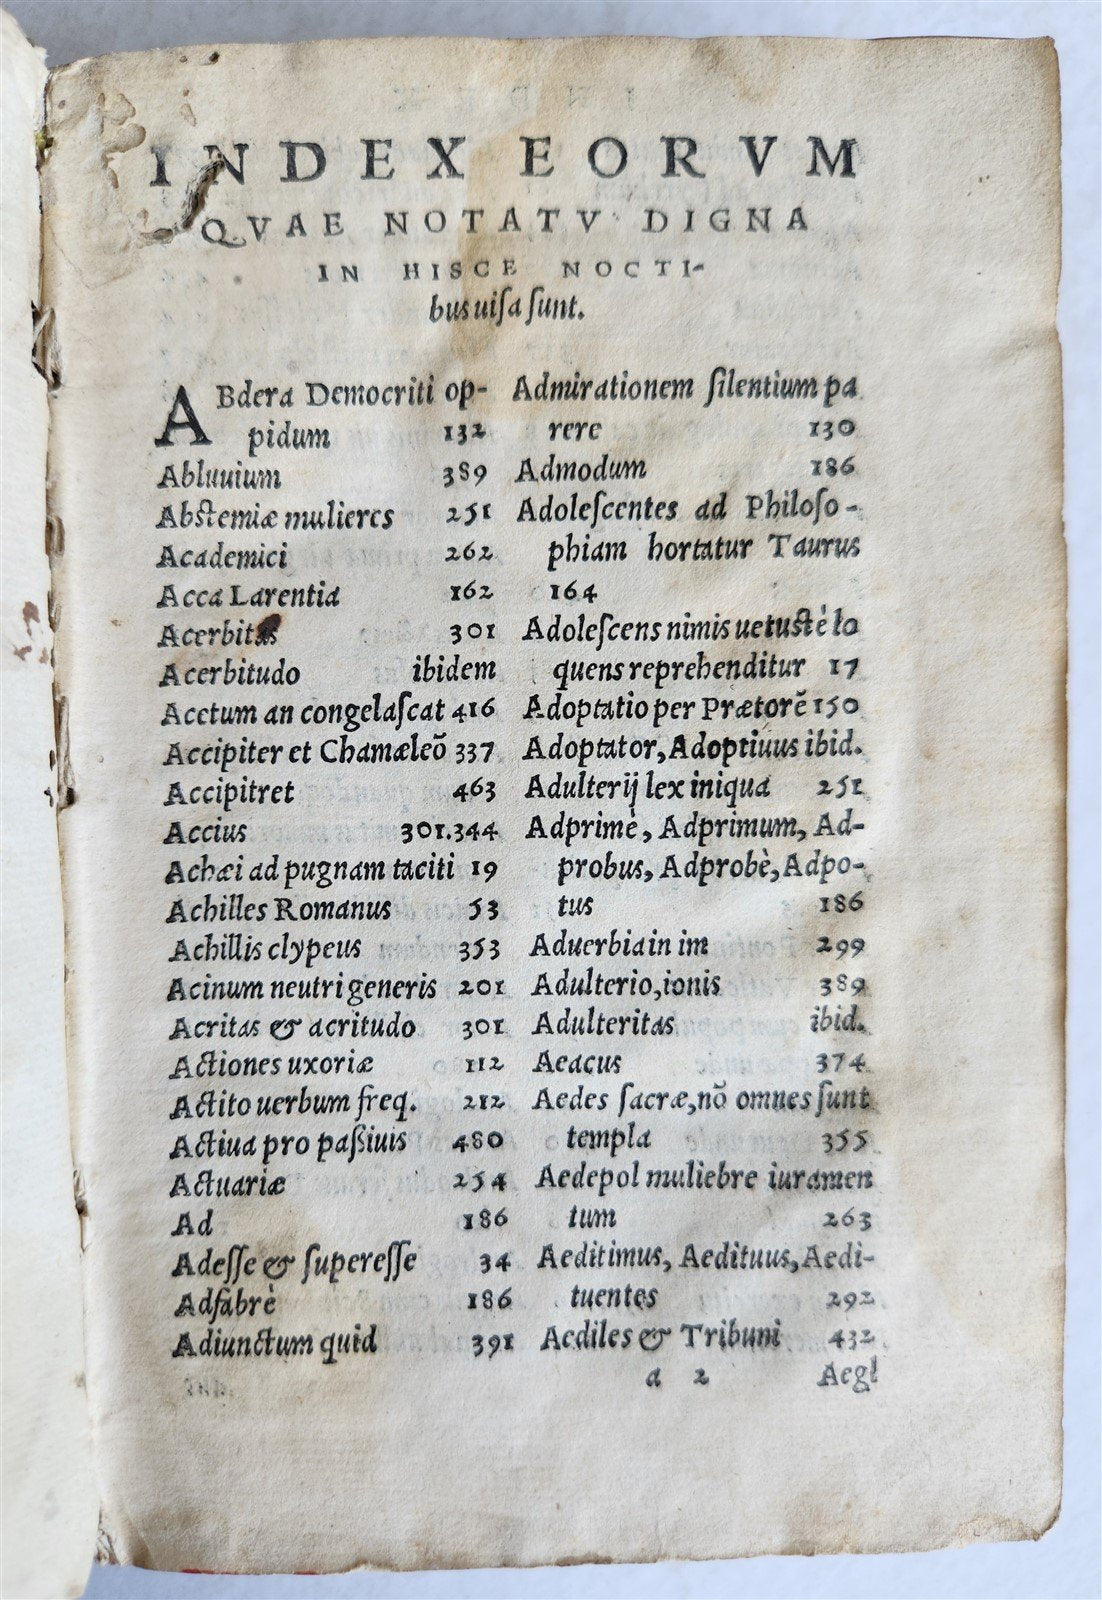 INDEX EORVM
QVAE NOTATV DIGNA
IN HISCE NOCTI-
bus uiſa ſunt.
ABdera Democriti op-
pidum 132
Abluuium 389
Abstemiæ mulieres 251
Academici 262
Acca Larentia 162
Acerbitas 301
Acerbitudo ibidem
Acetum an congelaſcat 416
Accipiter et Chamæleō 337
Accipitret 463
Accius 301.344
Achæi ad pugnam taciti 19
Achilles Romanus 53
Achillis clypeus 353
Acinum neutri generis 201
Acritas & acritudo 301
Actiones uxoriæ 112
Actito uerbum freq. 212
Actiua pro paßiuis 480
Actuariæ 254
Ad 186
Adeſſe & ſupereſſe 34
Adfabrè 186
Adiunctum quid 391
Admirationem ſilentium pa
rere 130
Admodum 186
Adoleſcentes ad Philoſo-
phiam hortatur Taurus
164
Adoleſcens nimis uetustè lo
quens reprehenditur 17
Adoptatio per Prætorē 150
Adoptator, Adoptiuus ibid.
Adulterij lex iniqua 251
Adprimè, Adprimum, Ad-
probus, Adprobè, Adpo-
tus 186
Aduerbia in im 299
Adulterio, ionis 389
Adulteritas ibid.
Aeacus 374
Aedes ſacræ, nō omnes ſunt
templa 355
Aedepol muliebre iuramen
tum 263
Aeditimus, Aedituus, Aedi-
tuentes 292
Aediles & Tribuni 432
a 2 Aegl